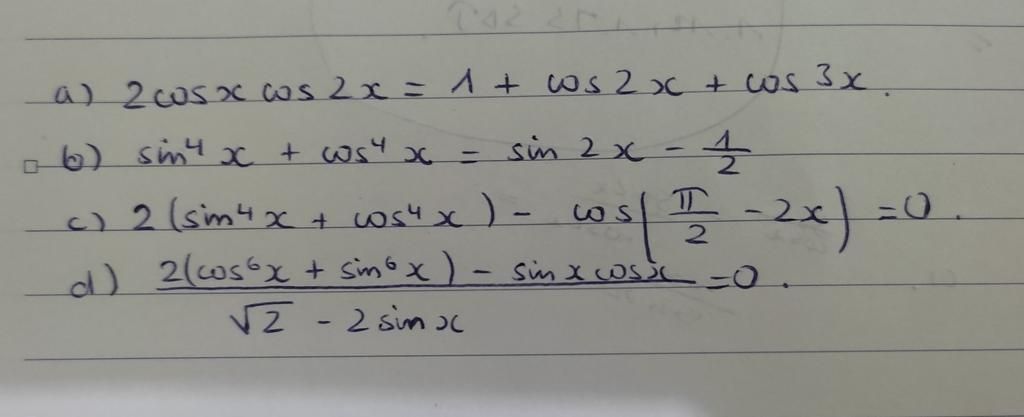 a) 2cosx cos 2x = 1 + cos 2x + cos 3x.
b) sin⁴ x + cos⁴ x = sin 2x - 1/2
c) 2 (sin⁴x + cos⁴x) - cos(π/2 - 2x) = 0.
d) (2(cos⁶x + sin⁶x) - sin x cosx)/(√2 - 2 sin x) = 0.